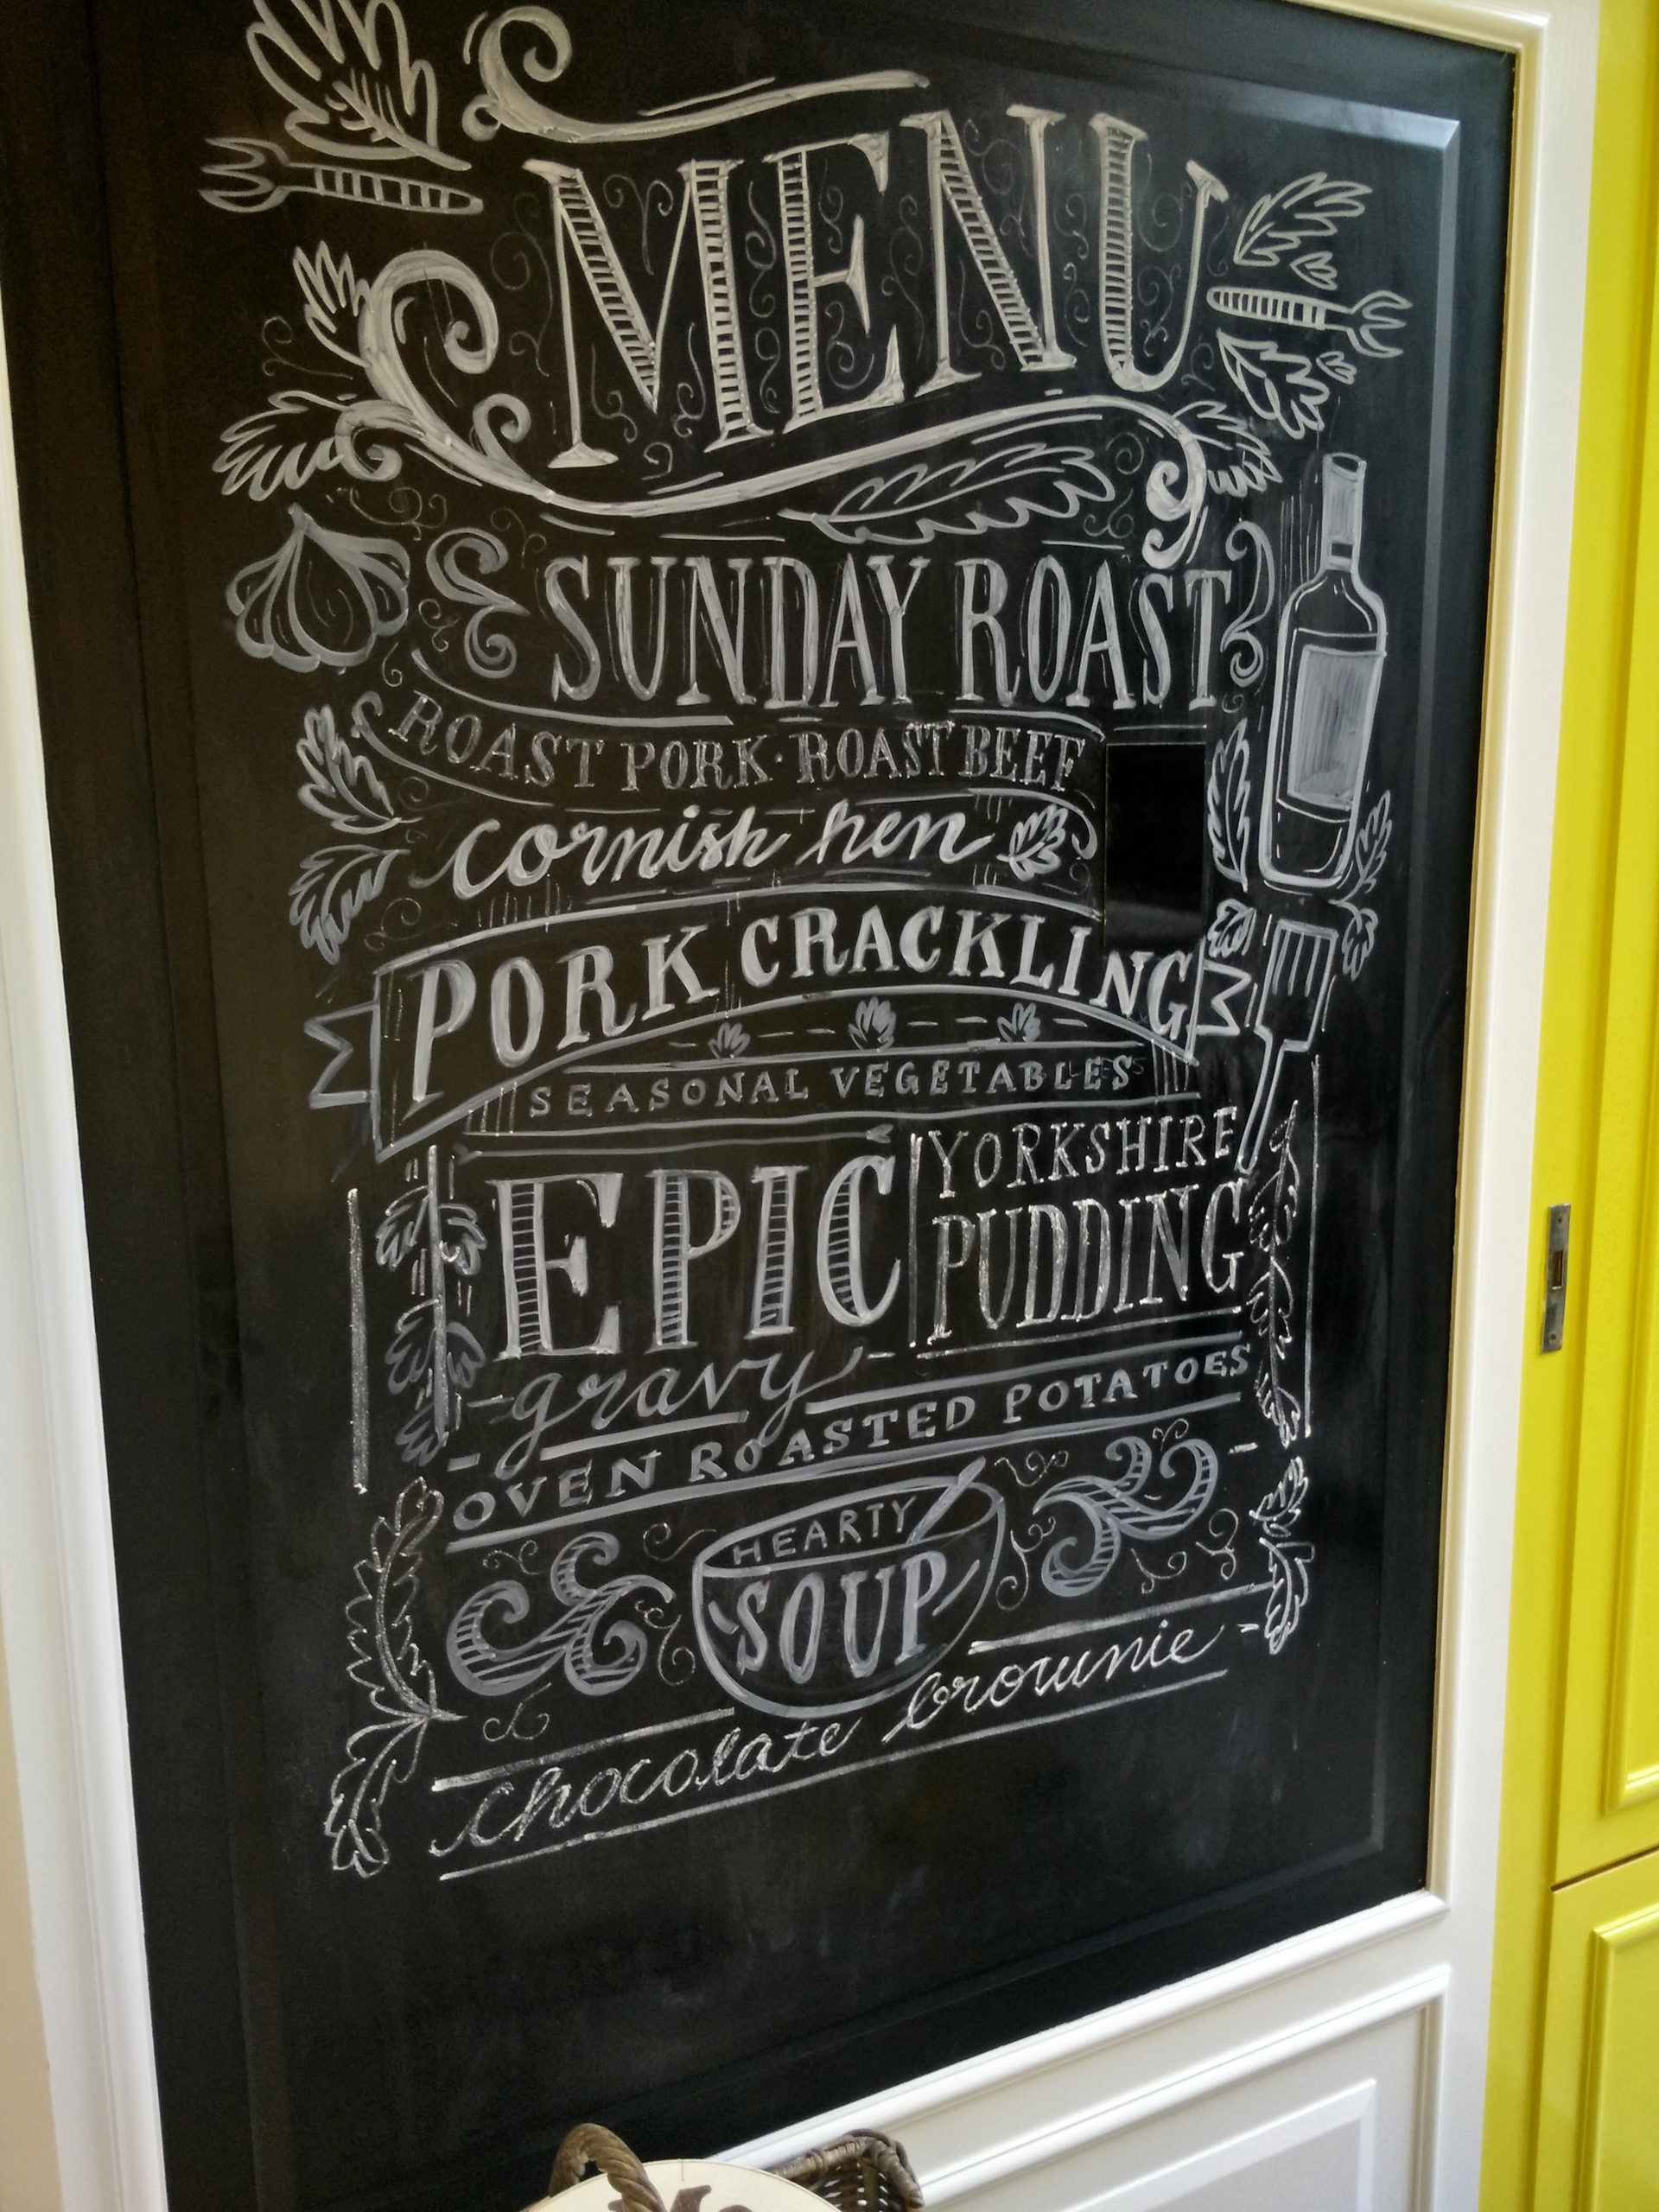 MENU
SUNDAY ROAST
ROAST PORK · ROAST BEEF
cornish hen
PORK CRACKLING
SEASONAL VEGETABLES
EPIC
YORKSHIRE
PUDDING
gravy
OVEN ROASTED POTATOES
HEARTY
SOUP
chocolate brownie